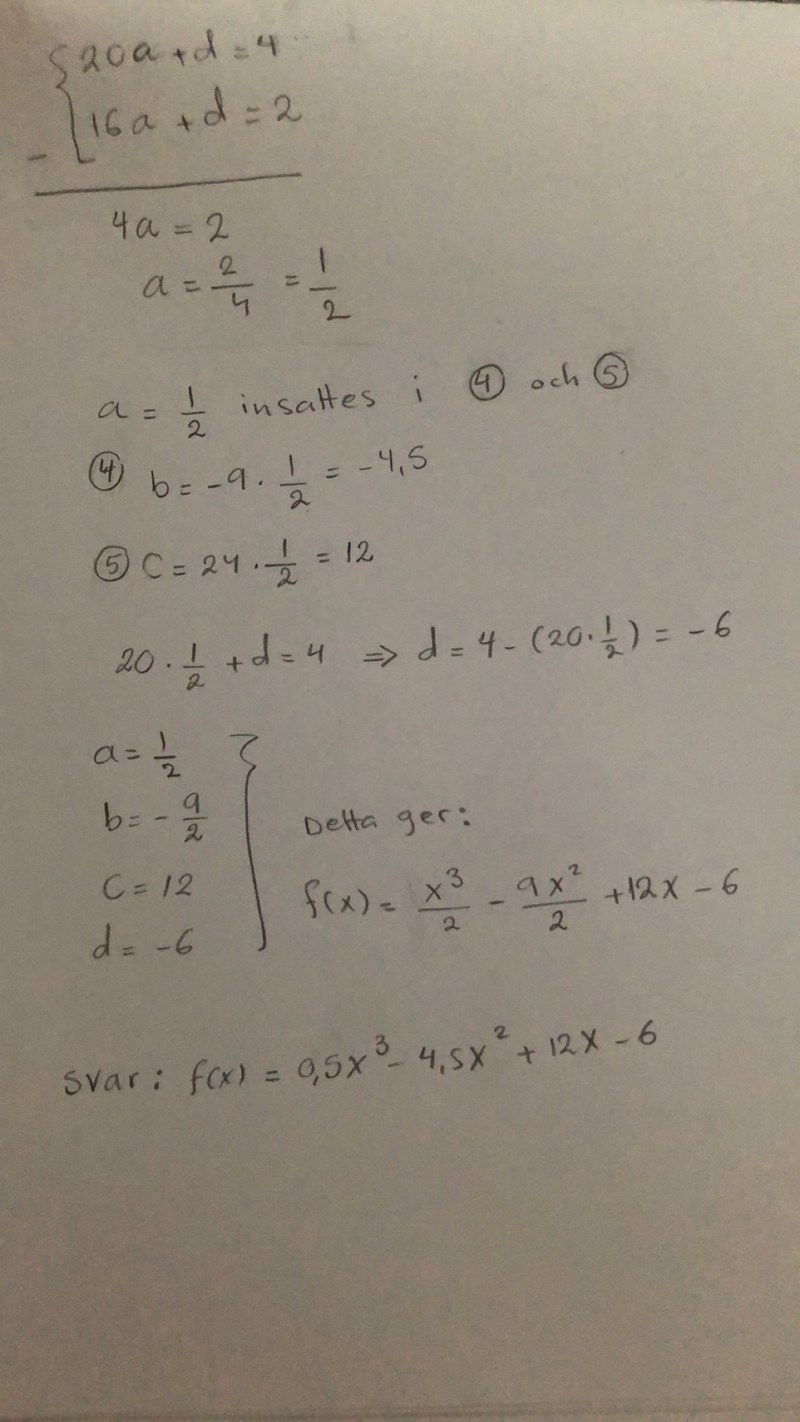 {20a + d = 4
- {16a + d = 2
4a = 2
a = 2/4 = 1/2
a = 1/2 insattes i ④ och ⑤
④ b = -9 · 1/2 = -4,5
⑤ C = 24 · 1/2 = 12
20 · 1/2 + d = 4 ⇒ d = 4 - (20 · 1/2) = -6
a = 1/2
b = - 9/2
C = 12
d = -6
} Detta ger:
f(x) = x³/2 - 9x²/2 + 12x - 6
Svar: f(x) = 0,5x³ - 4,5x² + 12x - 6